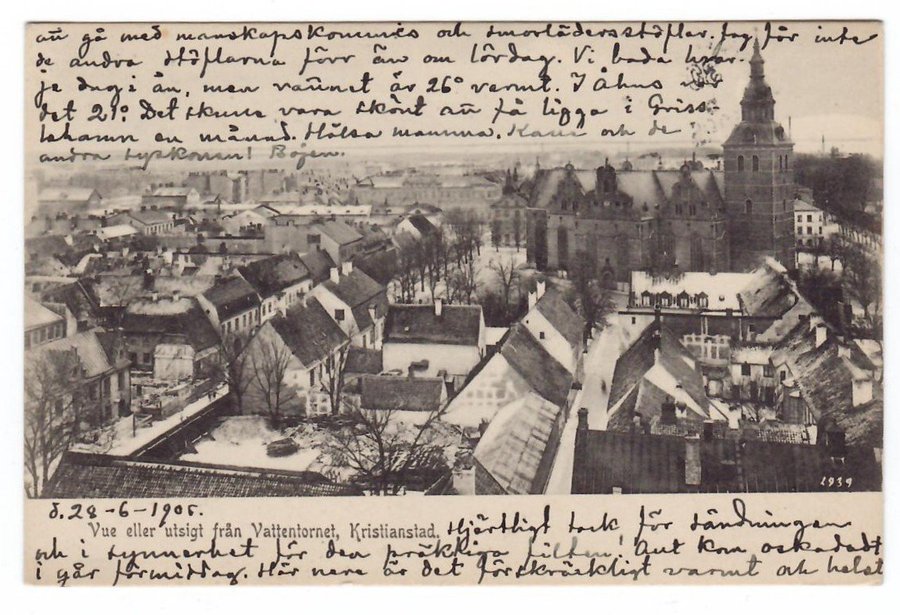 att gå med manskapskommiss och smorlädersstöflar. Jag får inte
de andra stöflarna förr än om lördag. Vi bada hvar-
je dag i ån, men vattnet är 26° varmt. I Åhus
det 21°. Det skulle vara skönt att få ligga i Griss-
lehamn en månad. Hälsa mamma, och de
andra syskonen! Bojen.
1939
d. 28-6-1905.
Vue eller utsigt från Vattentornet, Kristianstad.
Hjärtligt tack för sändningen
och i synnerhet för den präktiga filten! Allt kom oskadadt
i går förmiddag. Här nere är det förskräckligt varmt och helst